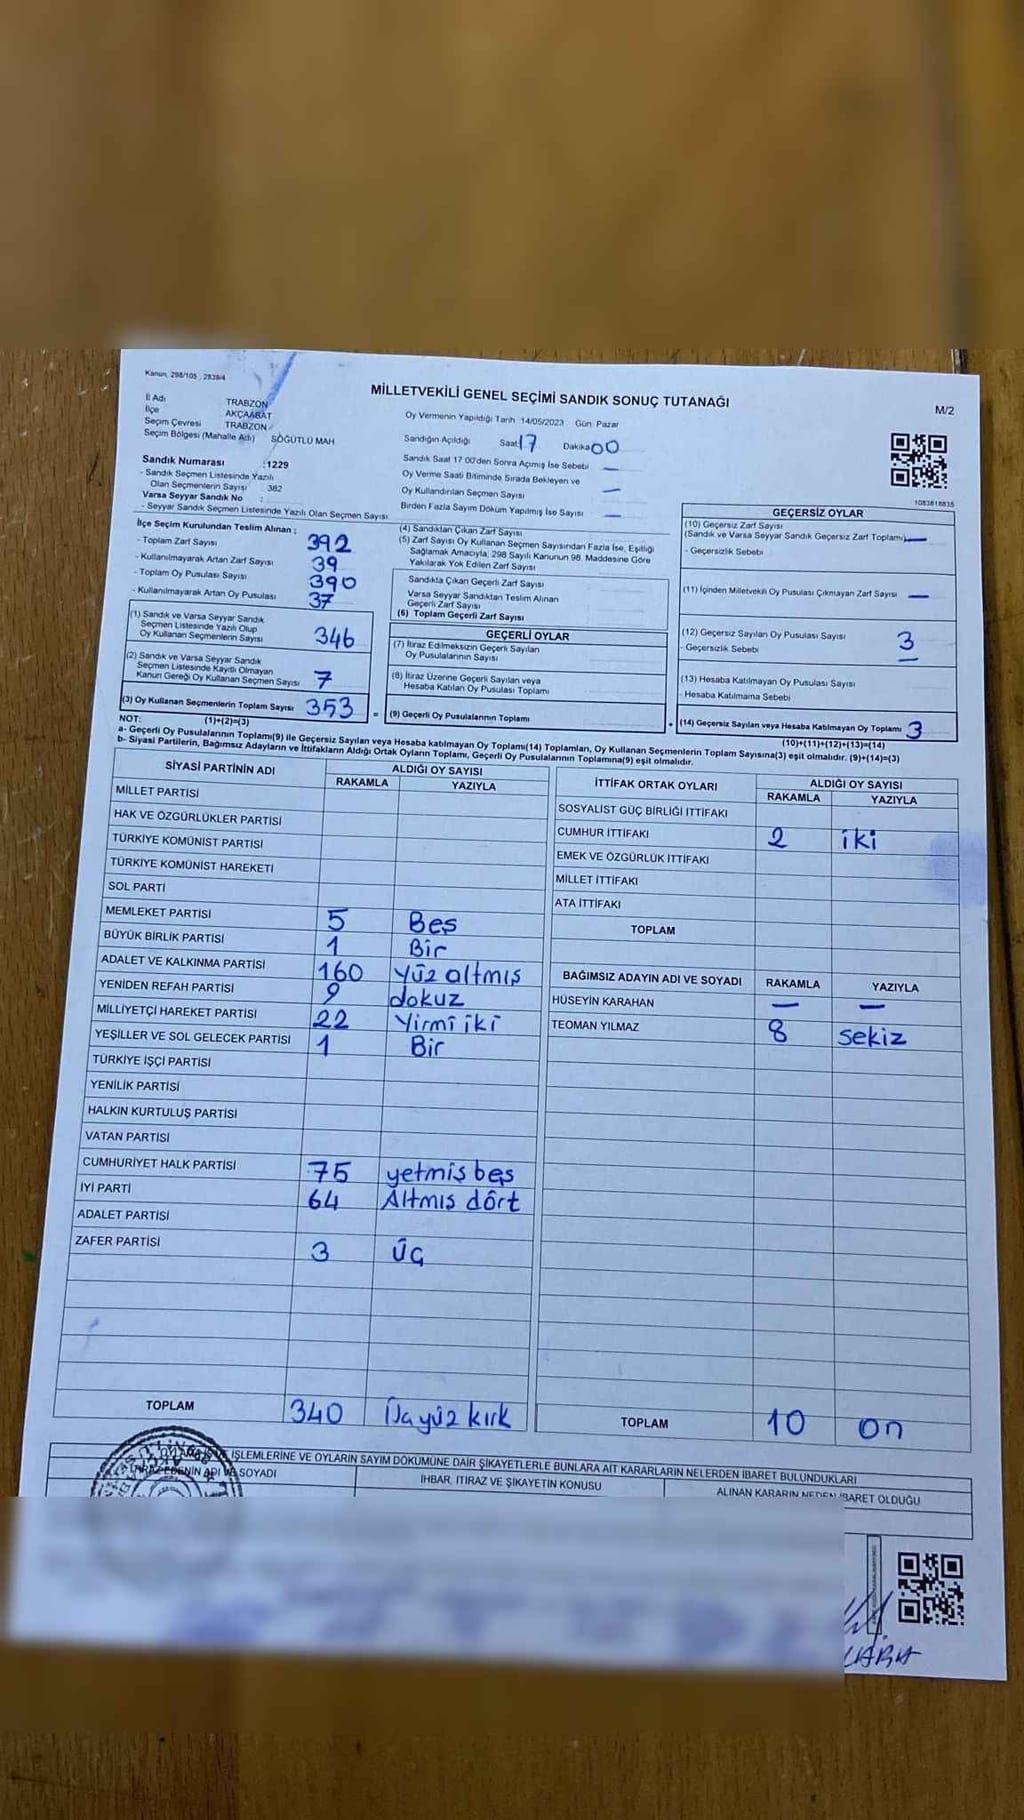 Kanun, 298/105 , 2839/4
MİLLETVEKİLİ GENEL SEÇİMİ SANDIK SONUÇ TUTANAĞI
M/2
İl Adı TRABZON
İlçe AKÇAABAT
Seçim Çevresi TRABZON
Seçim Bölgesi (Mahalle Adı) SÖĞÜTLÜ MAH
Oy Vermenin Yapıldığı Tarih 14/05/2023 Gün Pazar
Sandığın Açıldığı Saat 17 Dakika 00
Sandık Saat 17 00'den Sonra Açımış İse Sebebi —
Oy Verme Saati Bitiminde Sırada Bekleyen ve
Oy Kullandırılan Seçmen Sayısı —
Birden Fazla Sayım Döküm Yapılmış İse Sayısı —
1083618835
Sandık Numarası :1229
- Sandık Seçmen Listesinde Yazılı
Olan Seçmenlerin Sayısı : 382
Varsa Seyyar Sandık No :
- Seyyar Sandık Seçmen Listesinde Yazılı Olan Seçmen Sayısı:
İlçe Seçim Kurulundan Teslim Alınan ;
- Toplam Zarf Sayısı 392
- Kullanılmayarak Artan Zarf Sayısı 39
- Toplam Oy Pusulası Sayısı 390
- Kullanılmayarak Artan Oy Pusulası 37
(1) Sandık ve Varsa Seyyar Sandık
Seçmen Listesinde Yazılı Olup
Oy Kullanan Seçmenlerin Sayısı 346
(2) Sandık ve Varsa Seyyar Sandık
Seçmen Listesinde Kayıtlı Olmayan
Kanun Gereği Oy Kullanan Seçmen Sayısı 7
(3) Oy Kullanan Seçmenlerin Toplam Sayısı 353 =
(1)+(2)=(3)
(4) Sandıktan Çıkan Zarf Sayısı
(5) Zarf Sayısı Oy Kullanan Seçmen Sayısından Fazla İse, Eşitliği
Sağlamak Amacıyla, 298 Sayılı Kanunun 98. Maddesine Göre
Yakılarak Yok Edilen Zarf Sayısı
Sandıkta Çıkan Geçerli Zarf Sayısı
Varsa Seyyar Sandıktan Teslim Alınan
Geçerli Zarf Sayısı
(6) Toplam Geçerli Zarf Sayısı
GEÇERLİ OYLAR
(7) İtiraz Edilmeksizin Geçerli Sayılan
Oy Pusulalarının Sayısı
(8) İtiraz Üzerine Geçerli Sayılan veya
Hesaba Katılan Oy Pusulası Toplamı
(9) Geçerli Oy Pusulalarının Toplamı +
GEÇERSİZ OYLAR
(10) Geçersiz Zarf Sayısı
(Sandık ve Varsa Seyyar Sandık Geçersiz Zarf Toplamı) —
- Geçersizlik Sebebi
(11) İçinden Milletvekili Oy Pusulası Çıkmayan Zarf Sayısı —
(12) Geçersiz Sayılan Oy Pusulası Sayısı 3
- Geçersizlik Sebebi —
(13) Hesaba Katılmayan Oy Pusulası Sayısı
- Hesaba Katılmama Sebebi
(14) Geçersiz Sayılan veya Hesaba Katılmayan Oy Toplamı 3
(10)+(11)+(12)+(13)=(14)
NOT:
a- Geçerli Oy Pusulalarının Toplamı(9) ile Geçersiz Sayılan veya Hesaba katılmayan Oy Toplamı(14) Toplamları, Oy Kullanan Seçmenlerin Toplam Sayısına(3) eşit olmalıdır. (9)+(14)=(3)
b- Siyasi Partilerin, Bağımsız Adayların ve İttifakların Aldığı Ortak Oyların Toplamı, Geçerli Oy Pusulalarının Toplamına(9) eşit olmalıdır.
SİYASİ PARTİNİN ADI ALDIĞI OY SAYISI
RAKAMLA YAZIYLA
MİLLET PARTİSİ
HAK VE ÖZGÜRLÜKLER PARTİSİ
TÜRKİYE KOMÜNİST PARTİSİ
TÜRKİYE KOMÜNİST HAREKETİ
SOL PARTİ
MEMLEKET PARTİSİ 5 Beş
BÜYÜK BİRLİK PARTİSİ 1 Bir
ADALET VE KALKINMA PARTİSİ 160 Yüz altmış
YENİDEN REFAH PARTİSİ 9 dokuz
MİLLİYETÇİ HAREKET PARTİSİ 22 Yirmi iki
YEŞİLLER VE SOL GELECEK PARTİSİ 1 Bir
TÜRKİYE İŞÇİ PARTİSİ
YENİLİK PARTİSİ
HALKIN KURTULUŞ PARTİSİ
VATAN PARTİSİ
CUMHURİYET HALK PARTİSİ 75 yetmiş beş
İYİ PARTİ 64 Altmış dört
ADALET PARTİSİ
ZAFER PARTİSİ 3 Üç
TOPLAM 340 Üçyüz kırk
İTTİFAK ORTAK OYLARI ALDIĞI OY SAYISI
RAKAMLA YAZIYLA
SOSYALİST GÜÇ BİRLİĞİ İTTİFAKI
CUMHUR İTTİFAKI 2 iki
EMEK VE ÖZGÜRLÜK İTTİFAKI
MİLLET İTTİFAKI
ATA İTTİFAKI
TOPLAM
BAĞIMSIZ ADAYIN ADI VE SOYADI RAKAMLA YAZIYLA
HÜSEYİN KARAHAN — —
TEOMAN YILMAZ 8 sekiz
TOPLAM 10 on
İŞLEMLERİNE VE OYLARIN SAYIM DÖKÜMÜNE DAİR ŞİKAYETLERLE BUNLARA AİT KARARLARIN NELERDEN İBARET BULUNDUKLARI
ADI VE SOYADI İHBAR, İTİRAZ VE ŞİKAYETİN KONUSU ALINAN KARARIN NEDEN İBARET OLDUĞU